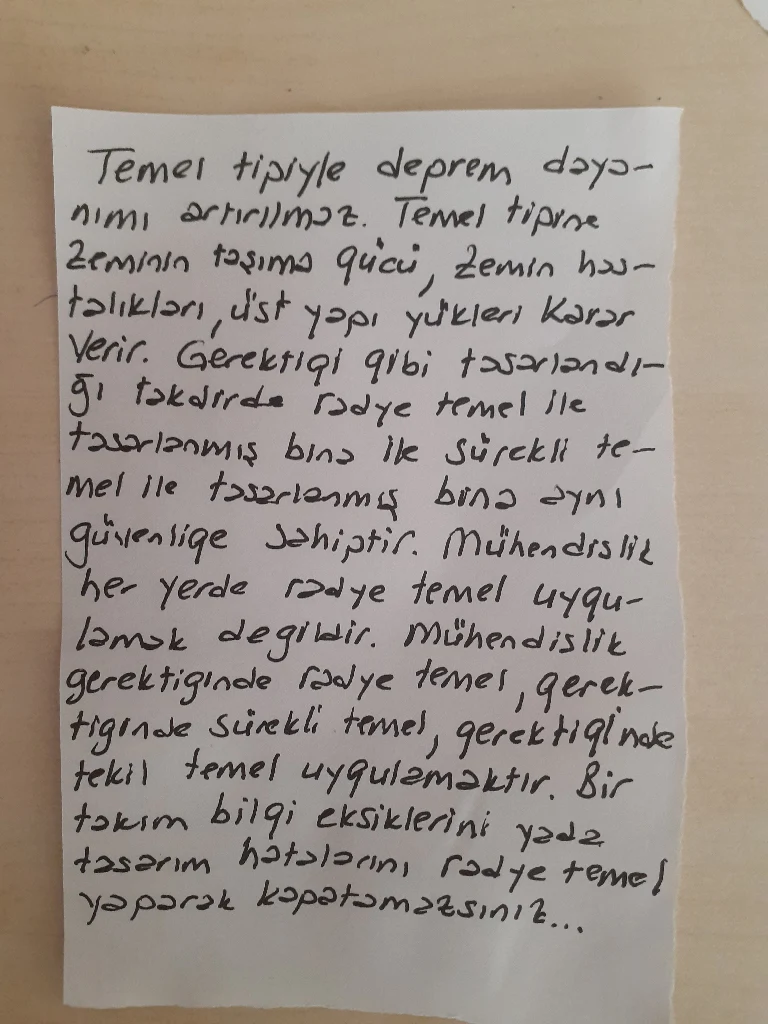 Temel tipiyle deprem daya-
nımı artırılmaz. Temel tipine
Zeminin taşıma gücü, zemin has-
talıkları, üst yapı yükleri Karar
Verir. Gerektiği gibi tasarlandı-
ğı takdirde radye temel ile
tasarlanmış bina ile sürekli te-
mel ile tasarlanmış bina aynı
güvenliğe sahiptir. Mühendislik
her yerde radye temel uygu-
lamak değildir. Mühendislik
gerektiğinde radye temel, gerek-
tiğinde sürekli temel, gerektiğinde
tekil temel uygulamaktır. Bir
takım bilgi eksiklerini yada
tasarım hatalarını radye temel
yaparak kapatamazsınız...